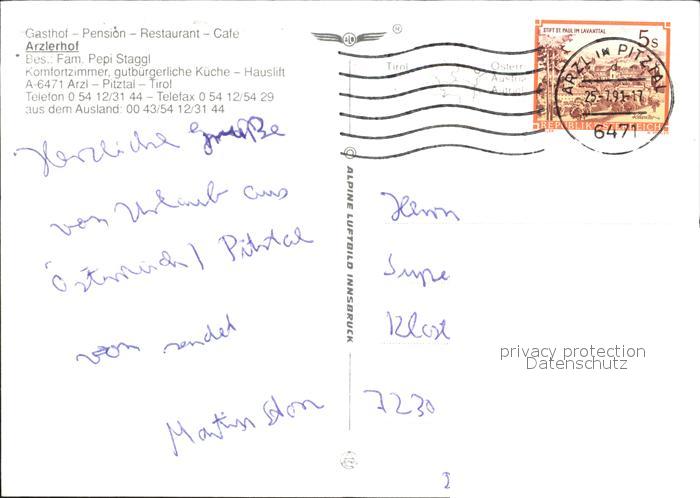 Gasthof – Pension – Restaurant – Cafe
Arzlerhof
Bes.: Fam. Pepi Staggl
Komfortzimmer, gutbürgerliche Küche – Hauslift
A-6471 Arzl – Pitztal – Tirol
Telefon 0 54 12/31 44 – Telefax 0 54 12/54 29
aus dem Ausland: 00 43/54 12/31 44
Herzliche Grüße
vom Urlaub aus
Österreich / Pitztal
sendet
Martin
ALPINE LUFTBILD INNSBRUCK
®
Tirol
STIFT ST. PAUL IM LAVANTTAL
5 S
REPUBLIK ÖSTERREICH
ARZL IM PITZTAL
25.-7.91-17
6471
Herrn
7230
privacy protection
Datenschutz